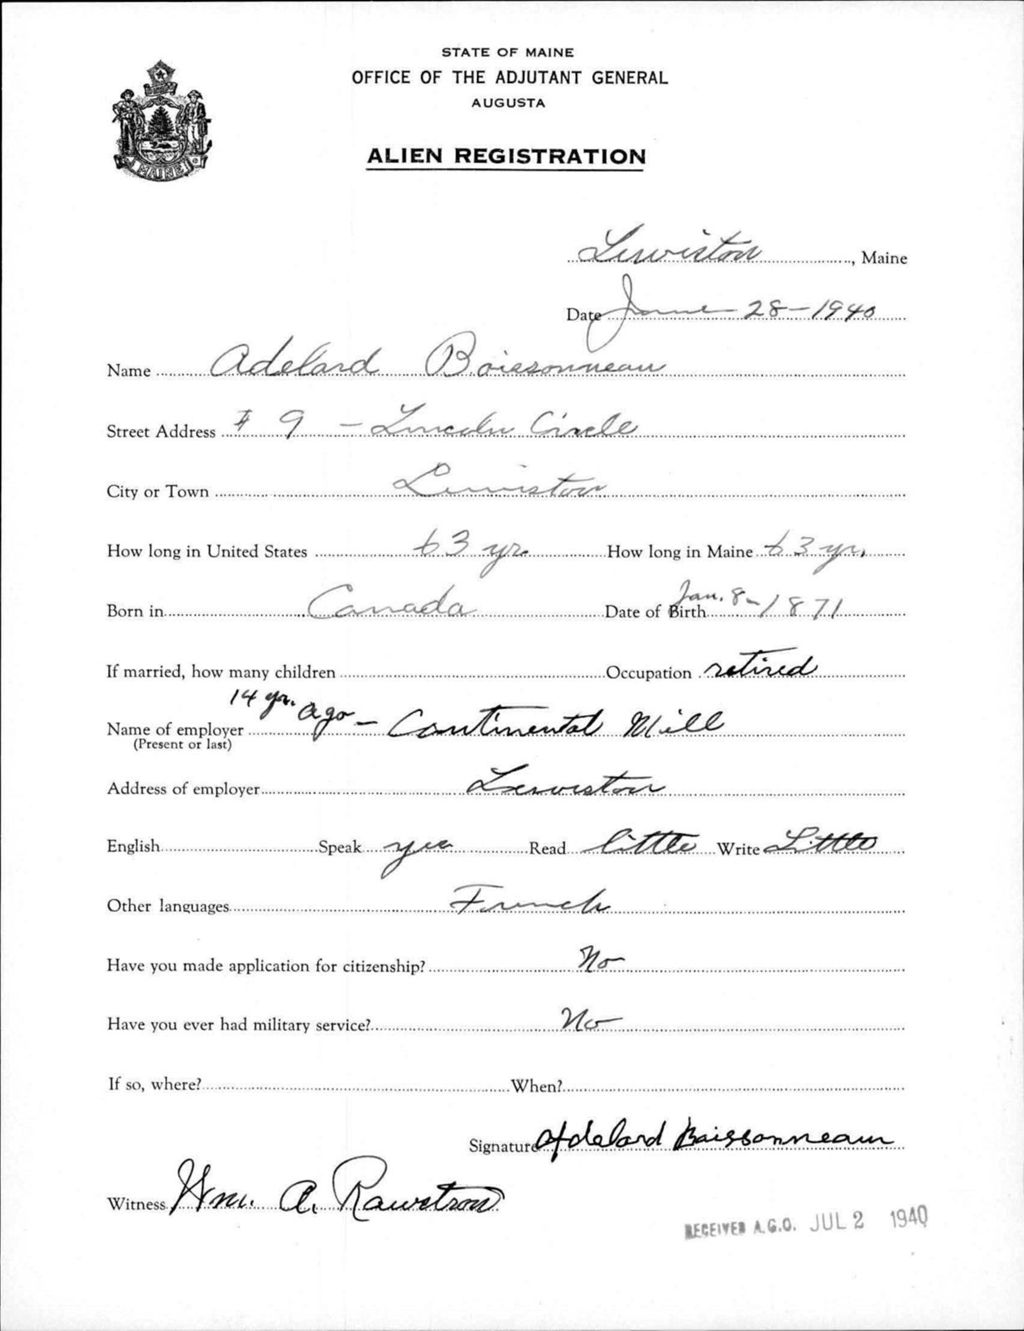 STATE OF MAINE
OFFICE OF THE ADJUTANT GENERAL
AUGUSTA
ALIEN REGISTRATION
MAINE
Lewiston, Maine
Date June 28-1940
Name Adelard Boissonneau
Street Address # 9 - Lincoln Circle
City or Town Lewiston
How long in United States 63 yr. How long in Maine 63 yr.
Born in Canada Date of Birth Jan. 8-1871
If married, how many children Occupation retired
Name of employer 14 yr. ago - Continental Mill
(Present or last)
Address of employer Lewiston
English Speak yes Read little Write Little
Other languages French
Have you made application for citizenship? No
Have you ever had military service? No
If so, where? When?
Signature Adelard Boissonneau
Witness Wm. A. Rawstron
RECEIVED A.G.O. JUL 2 1940